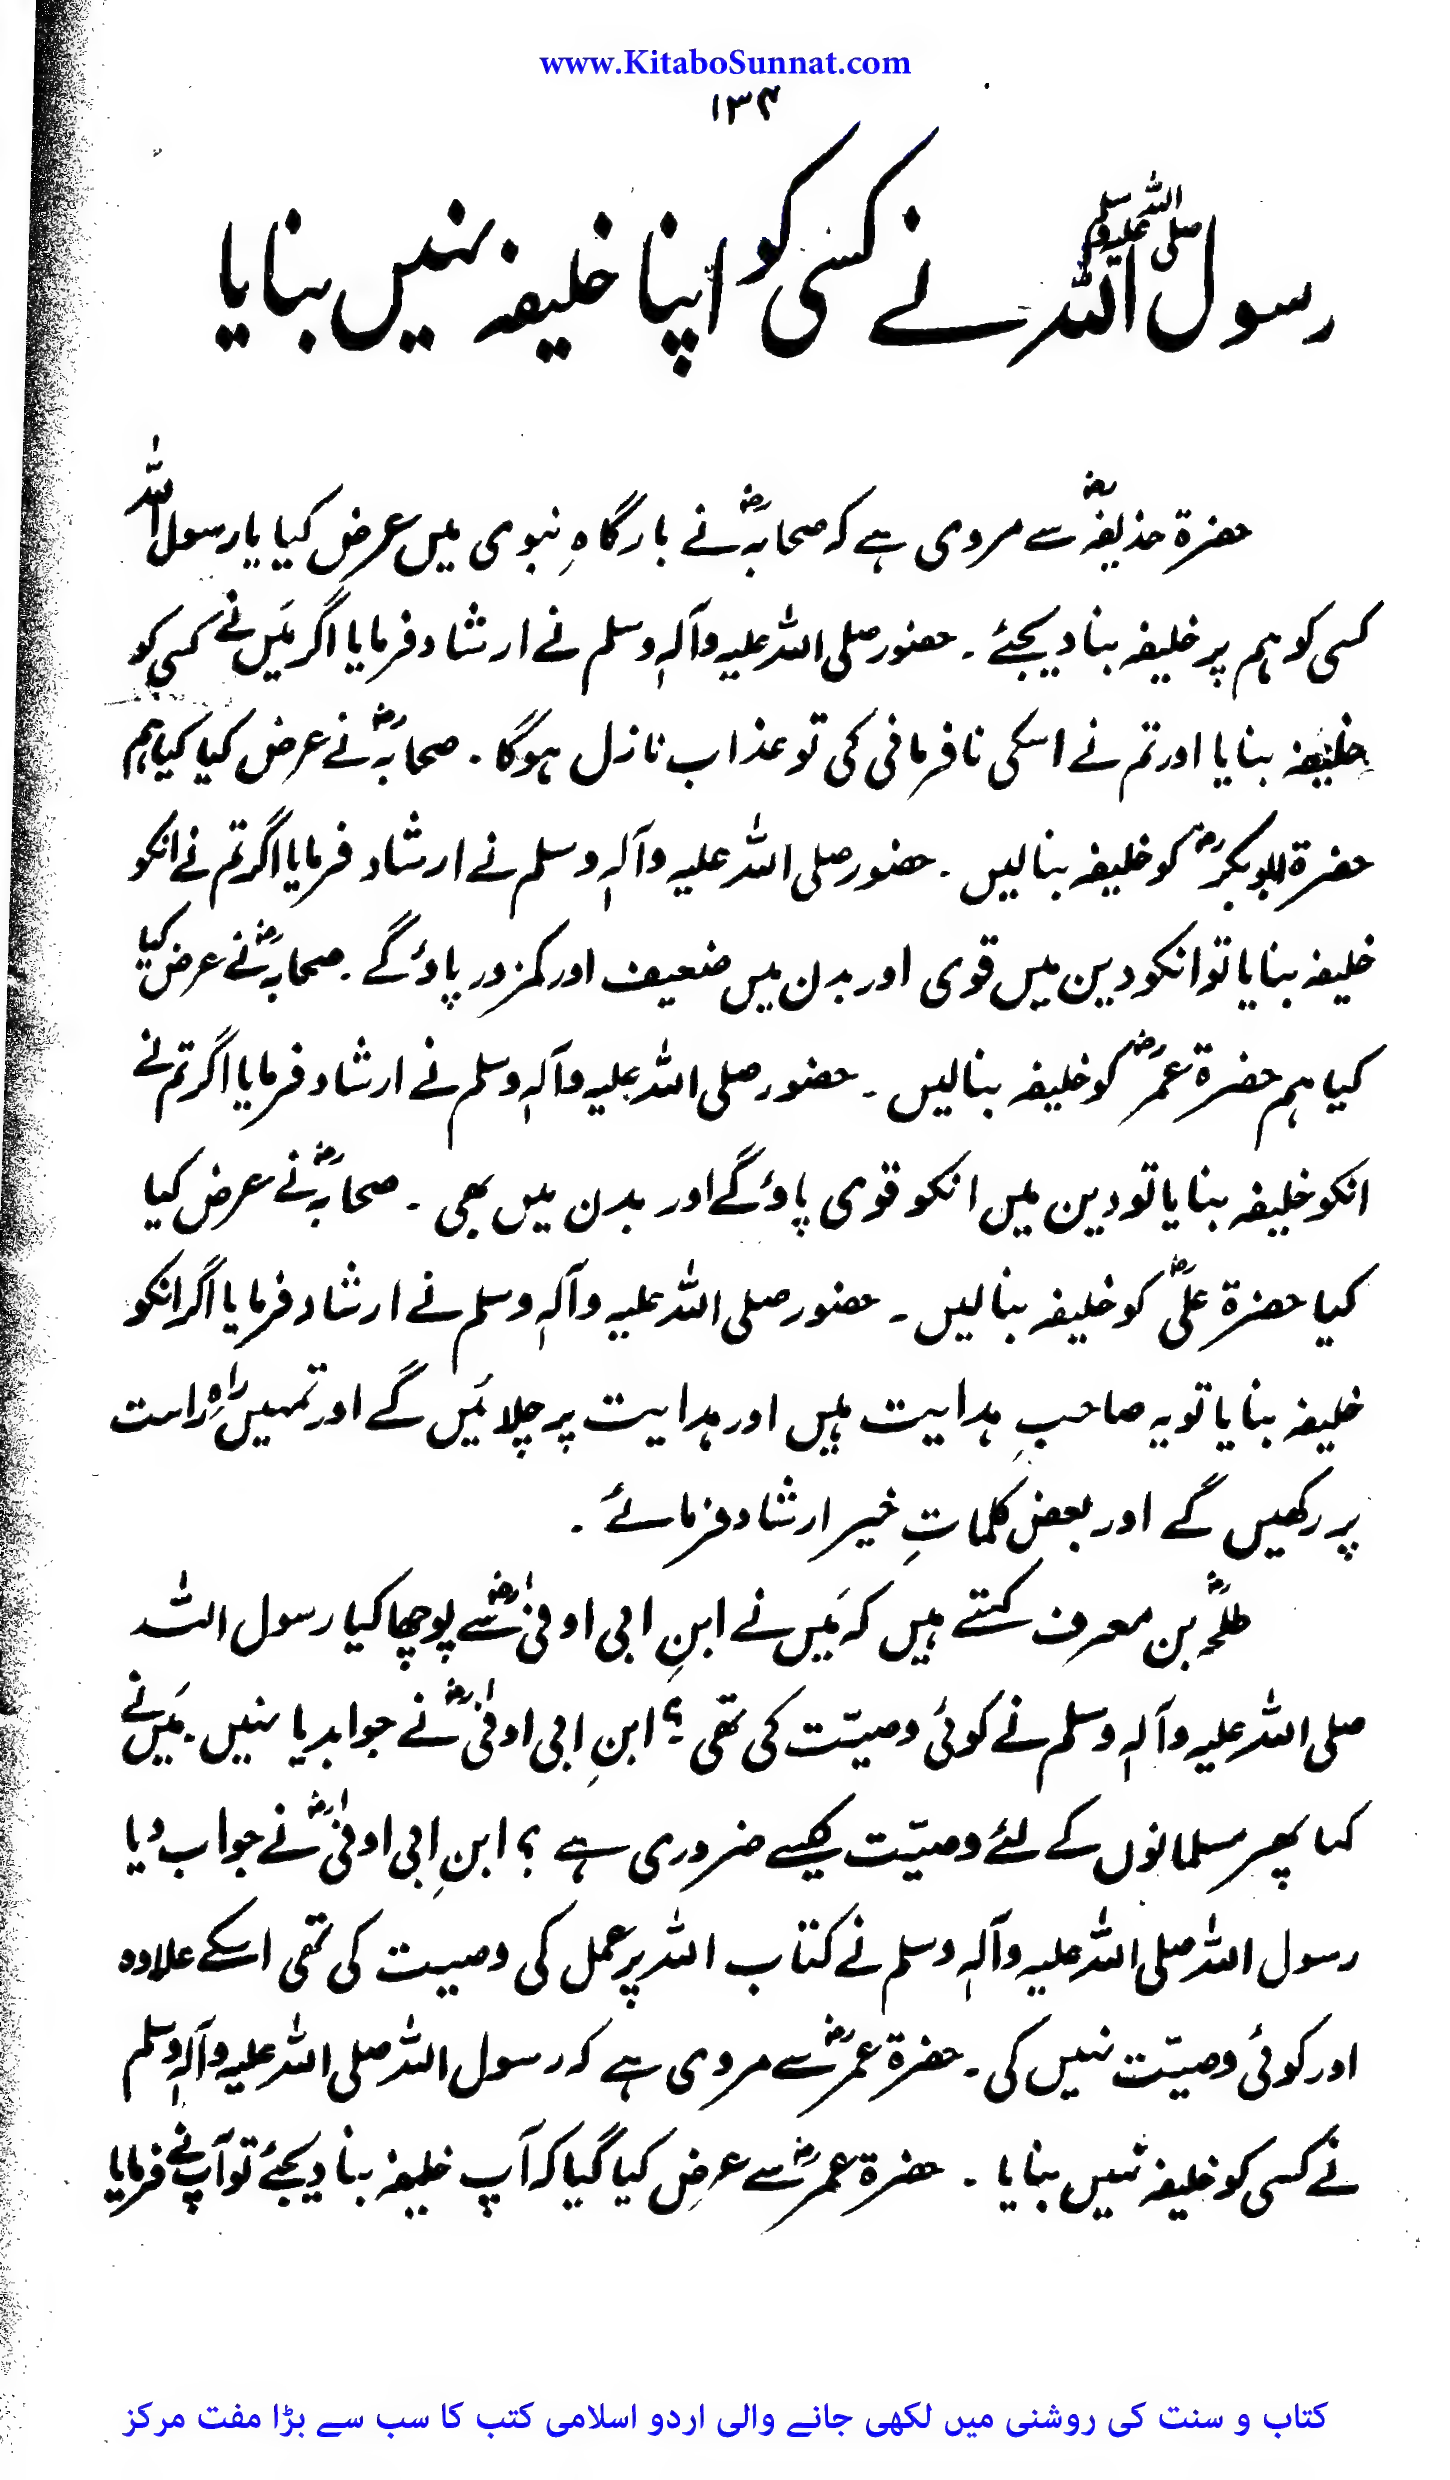 www.KitaboSunnat.com
۱۳۴
رسول اللہ صلی اللہ علیہ وسلم نے کسی کو اپنا خلیفہ نہیں بنایا
حضرۃ حذیفہؓ سے مروی ہے کہ صحابہؓ نے بارگاہِ نبوی میں عرض کیا یا رسول اللہ
کسی کو ہم پر خلیفہ بنا دیجئے ۔ حضور صلی اللہ علیہ وآلہٖ وسلم نے ارشاد فرمایا اگر مَیں نے کسی کو
خلیفہ بنایا اور تم نے اسکی نافرمانی کی تو عذاب نازل ہوگا ۔ صحابہؓ نے عرض کیا کیا ہم
حضرۃ ابوبکرؓ کو خلیفہ بنالیں ۔ حضور صلی اللہ علیہ وآلہٖ وسلم نے ارشاد فرمایا اگر تم نے انکو
خلیفہ بنایا تو انکو دین میں قوی اور بدن میں ضعیف اور کمزور پاؤ گے ۔ صحابہؓ نے عرض کیا
کیا ہم حضرۃ عمرؓ کو خلیفہ بنالیں ۔ حضور صلی اللہ علیہ وآلہٖ وسلم نے ارشاد فرمایا اگر تم نے
انکو خلیفہ بنایا تو دین میں انکو قوی پاؤ گے اور بدن میں بھی ۔ صحابہؓ نے عرض کیا
کیا حضرۃ علیؓ کو خلیفہ بنالیں ۔ حضور صلی اللہ علیہ وآلہٖ وسلم نے ارشاد فرمایا اگر انکو
خلیفہ بنایا تو یہ صاحبِ ہدایت ہیں اور ہدایت پر چلائیں گے اور تمہیں راہِ راست
پر رکھیں گے اور بعض کلماتِ خیر ارشاد فرمائے ۔
طلحہؓ بن معرف کہتے ہیں کہ مَیں نے ابنِ ابی اوفیٰؓ سے پوچھا کیا رسول اللہ
صلی اللہ علیہ وآلہٖ وسلم نے کوئی وصیّت کی تھی ؟ ابنِ ابی اوفیٰؓ نے جوابدیا نہیں ۔ مَیں نے
کہا پھر مسلمانوں کے لئے وصیّت کیسے ضروری ہے ؟ ابنِ ابی اوفیٰؓ نے جواب دیا
رسول اللہ صلی اللہ علیہ وآلہٖ وسلم نے کتاب اللہ پر عمل کی وصیت کی تھی اسکے علاوہ
اور کوئی وصیّت نہیں کی ۔ حضرۃ عمرؓ سے مروی ہے کہ رسول اللہ صلی اللہ علیہ وآلہٖ وسلم
نے کسی کو خلیفہ نہیں بنایا ۔ حضرۃ عمرؓ سے عرض کیا گیا کہ آپ خلیفہ بنا دیجئے تو آپ نے فرمایا
کتاب و سنت کی روشنی میں لکھی جانے والی اردو اسلامی کتب کا سب سے بڑا مفت مرکز